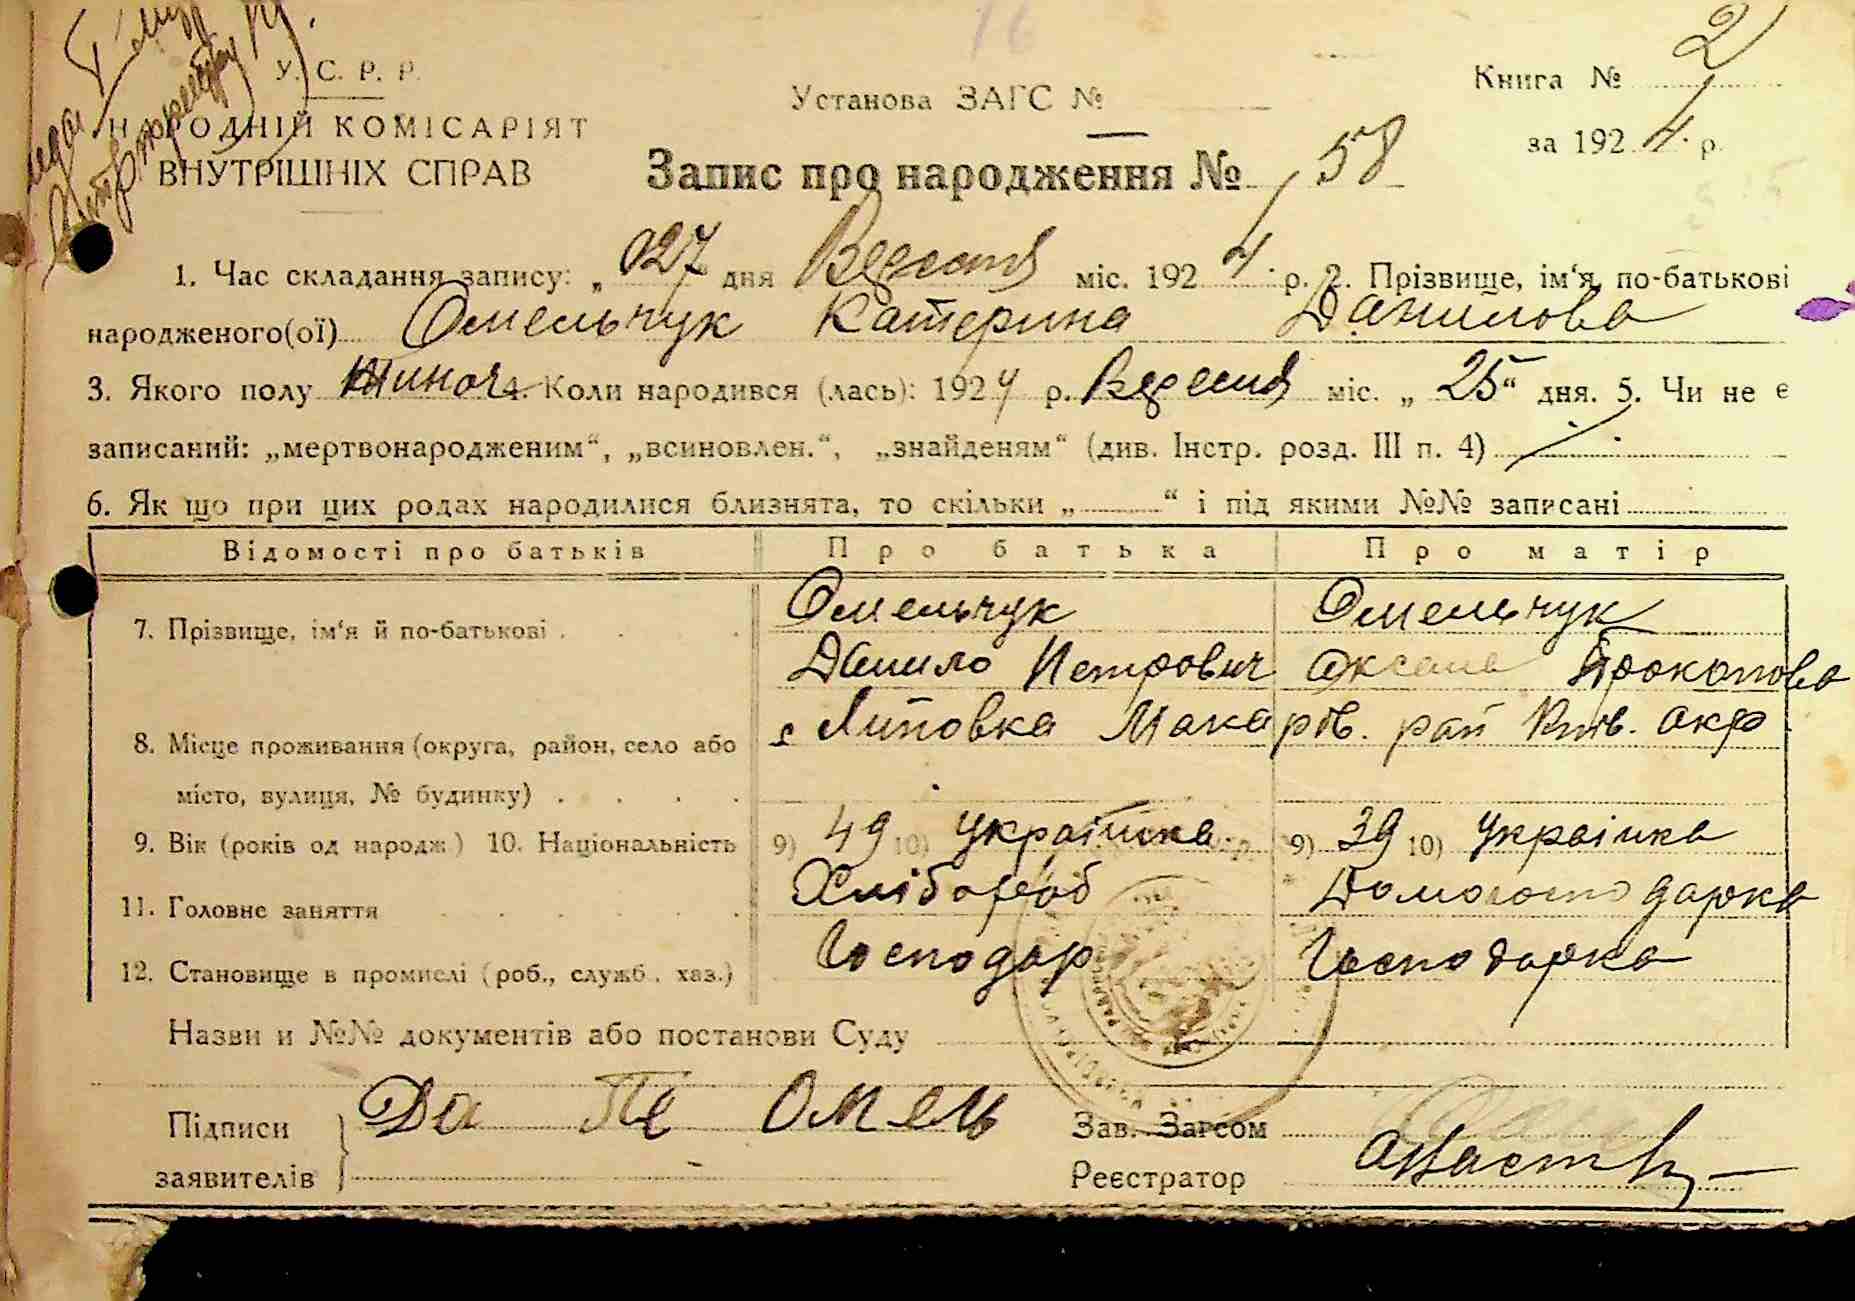 У. С. Р. Р.
НАРОДНІЙ КОМІСАРІЯТ
ВНУТРІШНІХ СПРАВ
Установа ЗАГС №
Книга № 2
за 1924. р.
Запис про народження № 58
1. Час складання запису: „027 дня Вересня міс. 1924. р. 2. Прізвище, ім‘я, по-батькові
народженого(ої) Омельчук Катерина Данилова
3. Якого полу Жиноч. 4. Коли народився (лась): 1924 р. Вересня міс. „25“ дня. 5. Чи не є
записаний: „мертвонародженим“, „всиновлен.“, „знайденям“ (див. Інстр. розд. III п. 4)
6. Як що при цих родах народилися близнята, то скільки „ “ і під якими №№ записані
Відомості про батьків Про батька Про матір
7. Прізвище, ім‘я й по-батькові Омельчук Омельчук
Данило Петрович Оксана Прокопова
8. Місце проживання (округа, район, село або с Липовка Макарів. рай Київ. окр.
місто, вулиця, № будинку)
9. Вік (років од народж.) 10. Національність 9) 49 10) українка 9) 39 10) українка
11. Головне заняття Хлібороб Домогосподарка
12. Становище в промислі (роб., служб., хаз.) Господар Господарка
Назви и №№ документів або постанови Суду
Підписи заявителів Да Пе Омель
Зав. Загсом
Реєстратор